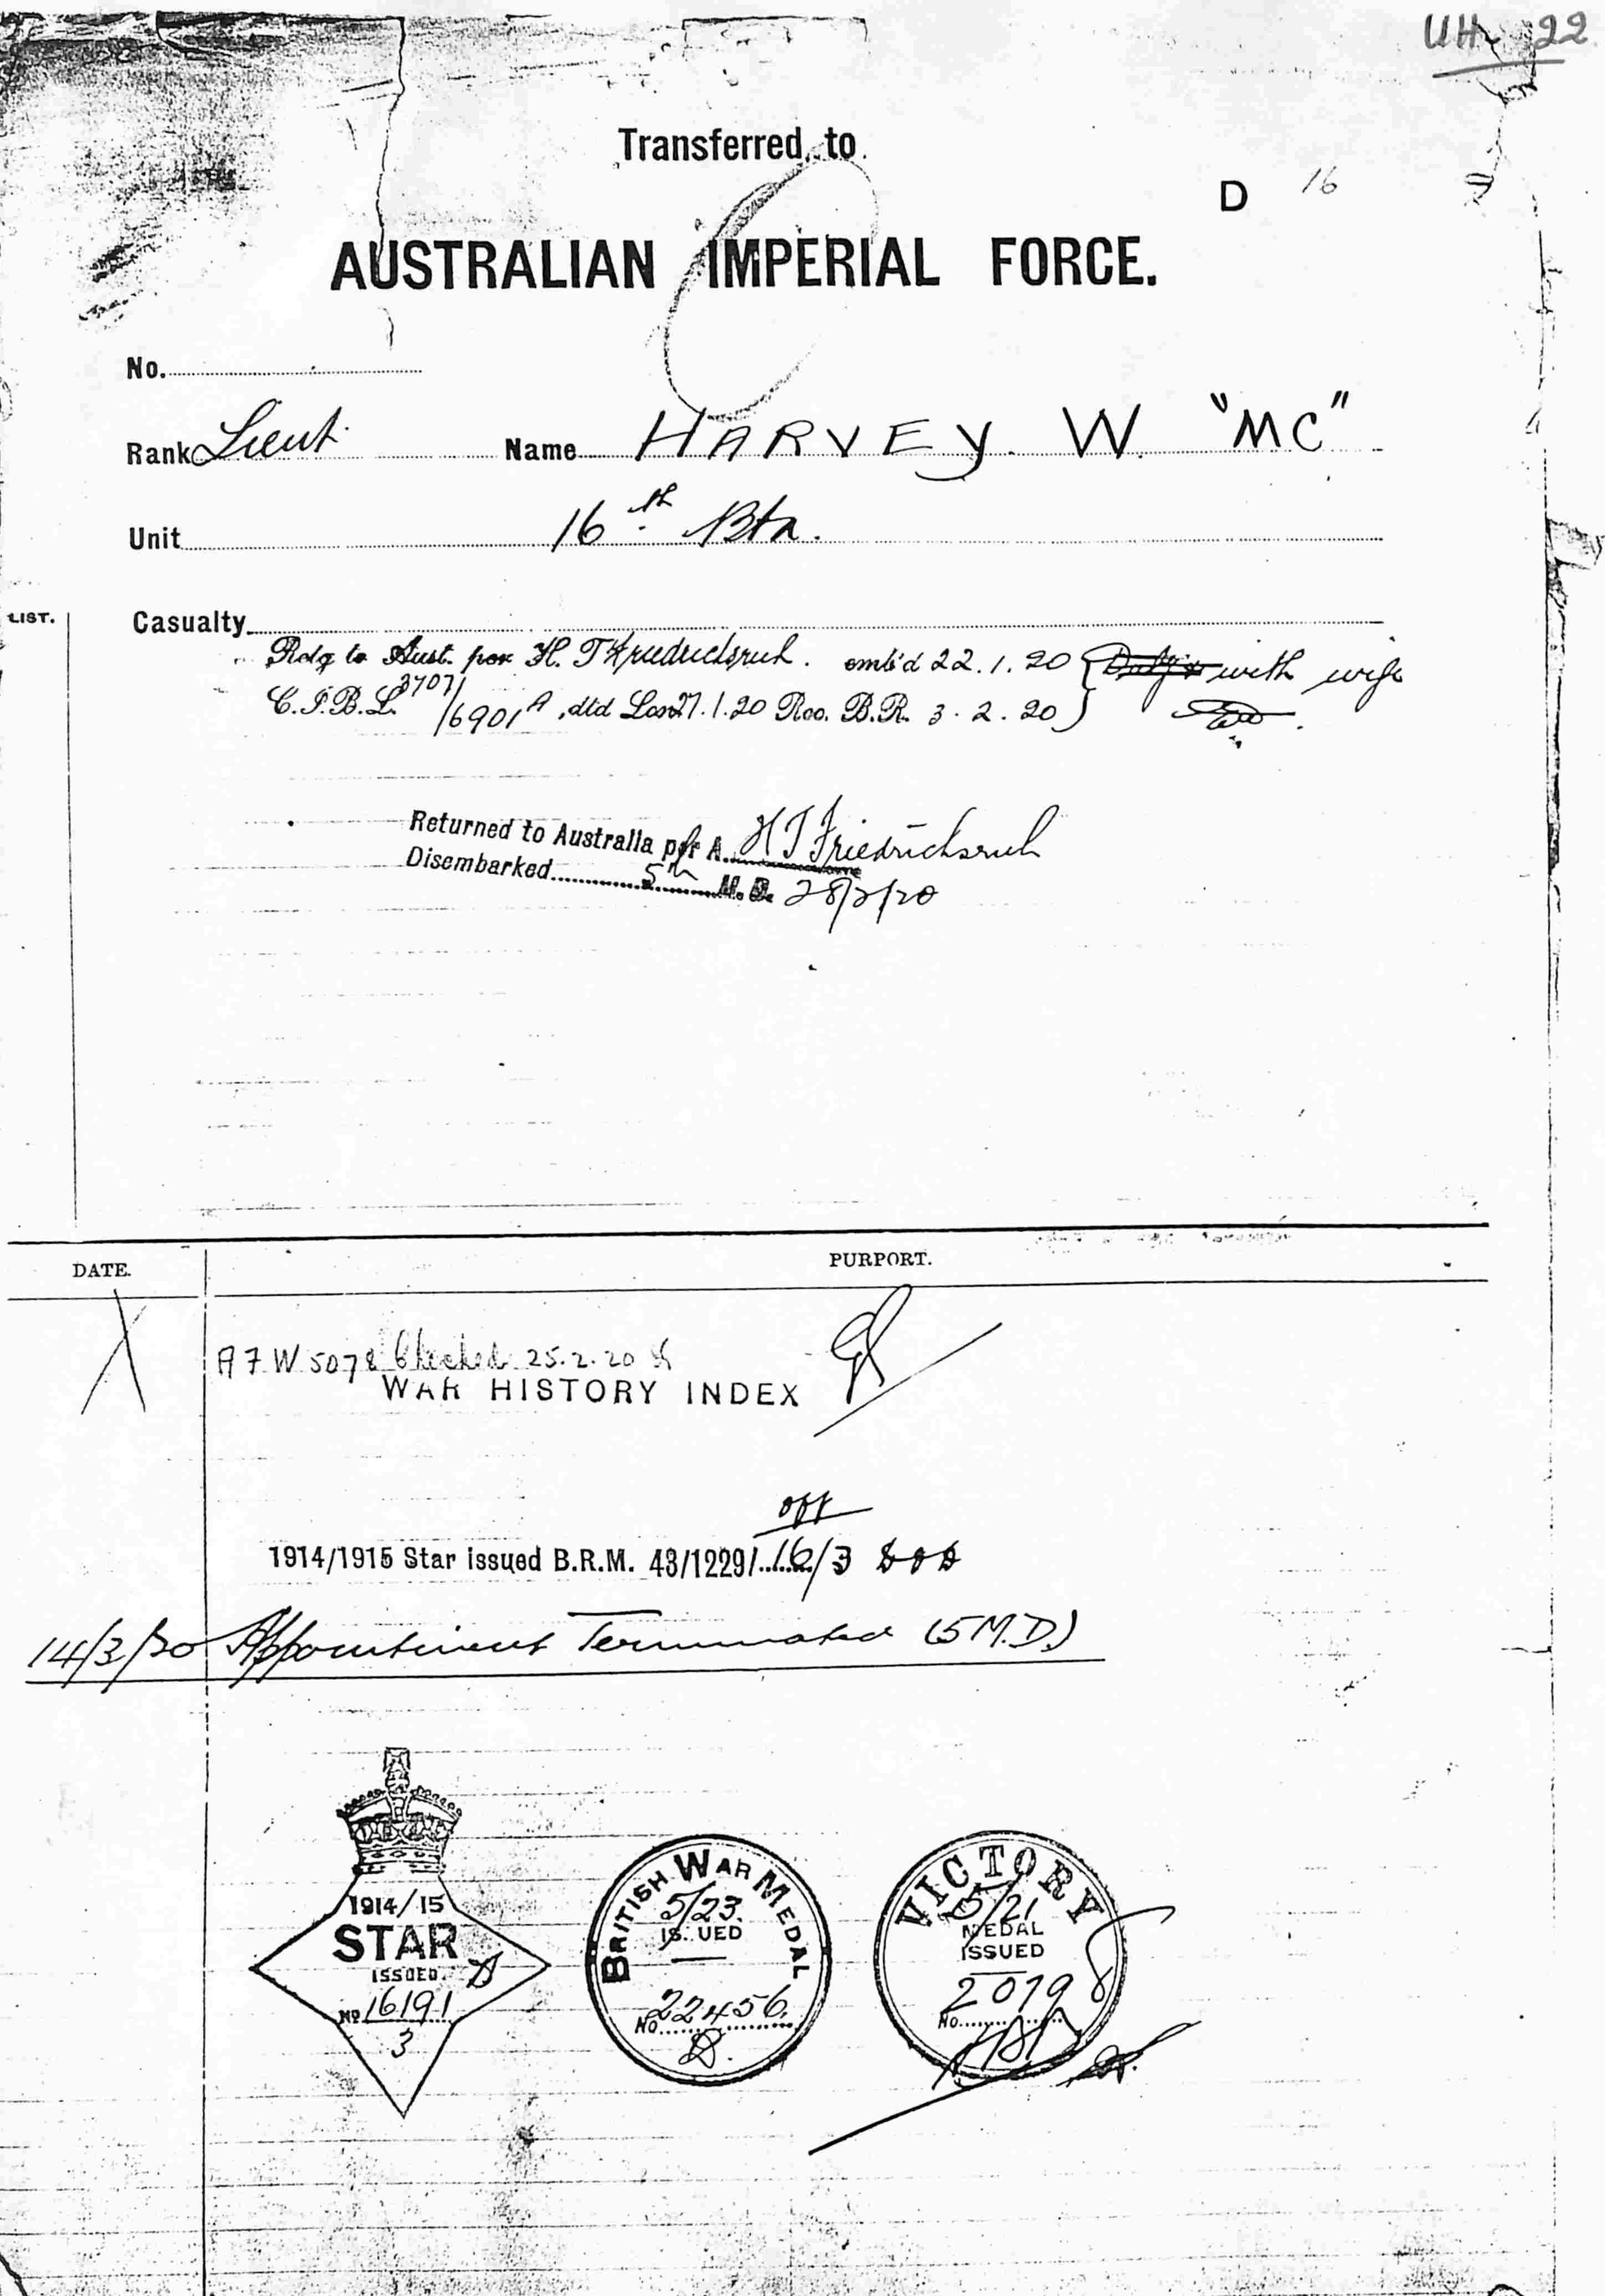 UH 22
Transferred to
D 16
AUSTRALIAN IMPERIAL FORCE.
No.
Rank Lieut. Name HARVEY. W. "MC"
Unit 16th Btn.
LIST.
Casualty
Rdg to Aust. per H. T Friedrichsruh. emb'd 22.1.20 with wife
C.I.B.L. 3707/6901 A, dtd Lon 27.1.20 Rec. B.R. 3.2.20
Returned to Australia per A. H T Friedrichsruh
Disembarked 5th M.D. 28/2/20
DATE. PURPORT.
A F W 5078 Checked 25.2.20
WAR HISTORY INDEX
off
1914/1915 Star issued B.R.M. 43/1229/ 16/3
14/3/20 Appointment Terminated (5 M.D.)
1914/15
STAR
ISSUED.
No 16191
3
BRITISH WAR MEDAL
5/23.
IS UED
No. 22456.
VICTORY
15/21
MEDAL
ISSUED
20198
No.